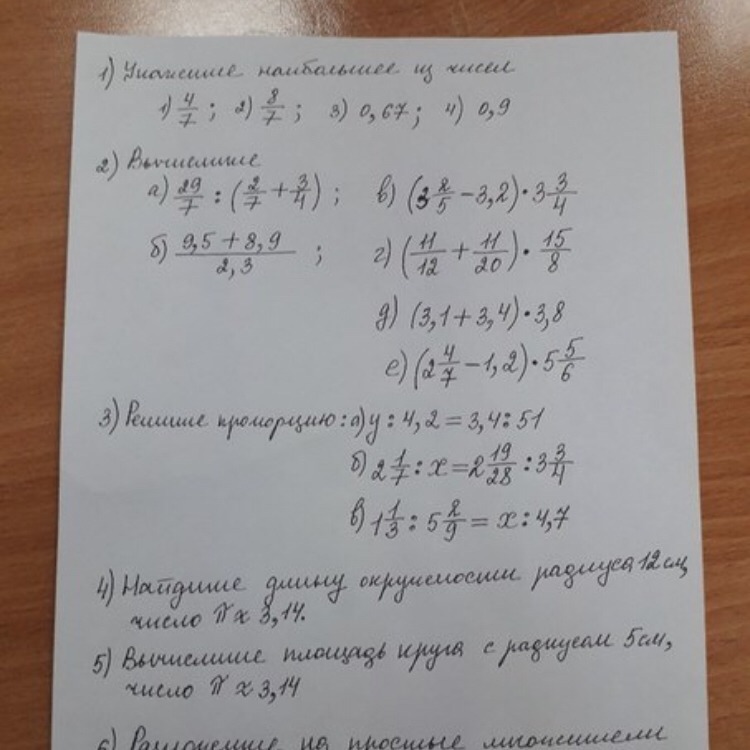 1) Укажите наибольшее из чисел
1) 4/7 ; 2) 8/7 ; 3) 0,67 ; 4) 0,9
2) Вычислите
а) 29/7 : (2/7 + 3/4) ; в) (3 2/5 − 3,2) · 3 3/4
б) (9,5 + 8,9)/2,3 ; г) (11/12 + 11/20) · 15/8
д) (3,1 + 3,4) · 3,8
е) (2 4/7 − 1,2) · 5 5/6
3) Решите пропорцию: а) y : 4,2 = 3,4 : 51
б) 2 1/7 : x = 2 19/28 : 3 3/4
в) 1 1/3 : 5 2/9 = x : 4,7
4) Найдите длину окружности радиуса 12 см,
число π ≈ 3,14.
5) Вычислите площадь круга с радиусом 5 см,
число π ≈ 3,14
6) Разложите на простые множители